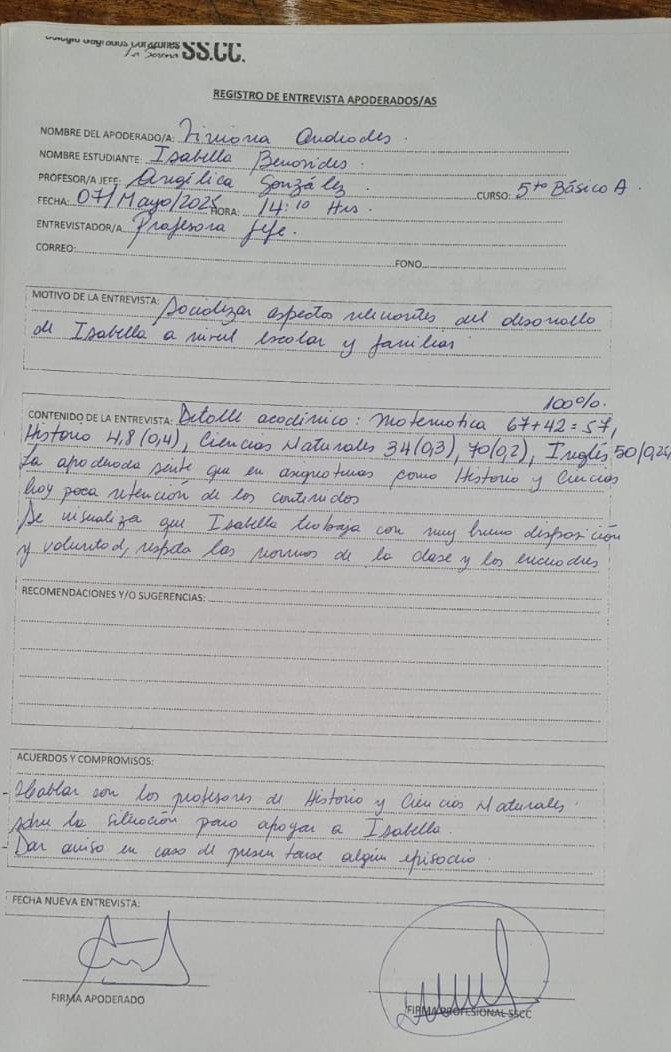 Colegio Sagrados Corazones
La Serena SS.CC.
REGISTRO DE ENTREVISTA APODERADOS/AS
NOMBRE DEL APODERADO/A: Viviana Andrades.
NOMBRE ESTUDIANTE: Isabella Benavides.
PROFESOR/A JEFE: Angélica González. CURSO: 5to Básico A.
FECHA: 07/Mayo/2025 HORA: 14:10 Hrs.
ENTREVISTADOR/A: Profesora jefe.
CORREO: FONO
MOTIVO DE LA ENTREVISTA: Socializar aspectos relevantes del desarrollo
de Isabella a nivel escolar y familiar
100%.
CONTENIDO DE LA ENTREVISTA: Detalle académico: Matemática 67+42=57,
Historia 4,8 (0,4), Ciencias Naturales 34(0,3), 70(0,2), Inglés 50(0,25)
La apoderada siente que en asignaturas como Historia y Ciencias
hay poca retención de los contenidos
Se visualiza que Isabella trabaja con muy buena disposición
y voluntad, respeta las normas de la clase y los encuadres
RECOMENDACIONES Y/O SUGERENCIAS:
ACUERDOS Y COMPROMISOS:
- Hablar con los profesores de Historia y Ciencias Naturales
sobre la situación para apoyar a Isabella.
- Dar aviso en caso de presentarse algún episodio
FECHA NUEVA ENTREVISTA:
FIRMA APODERADO
FIRMA PROFESIONAL SSCC